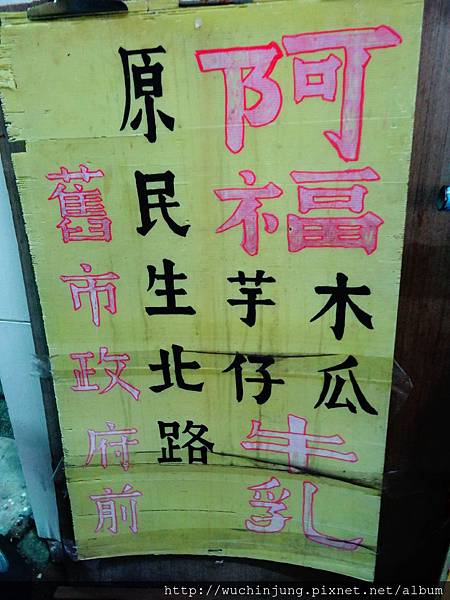 阿福
木瓜
芋仔
牛乳
原民生北路
舊市政府前
http://wuchinjung.pixnet.net/album